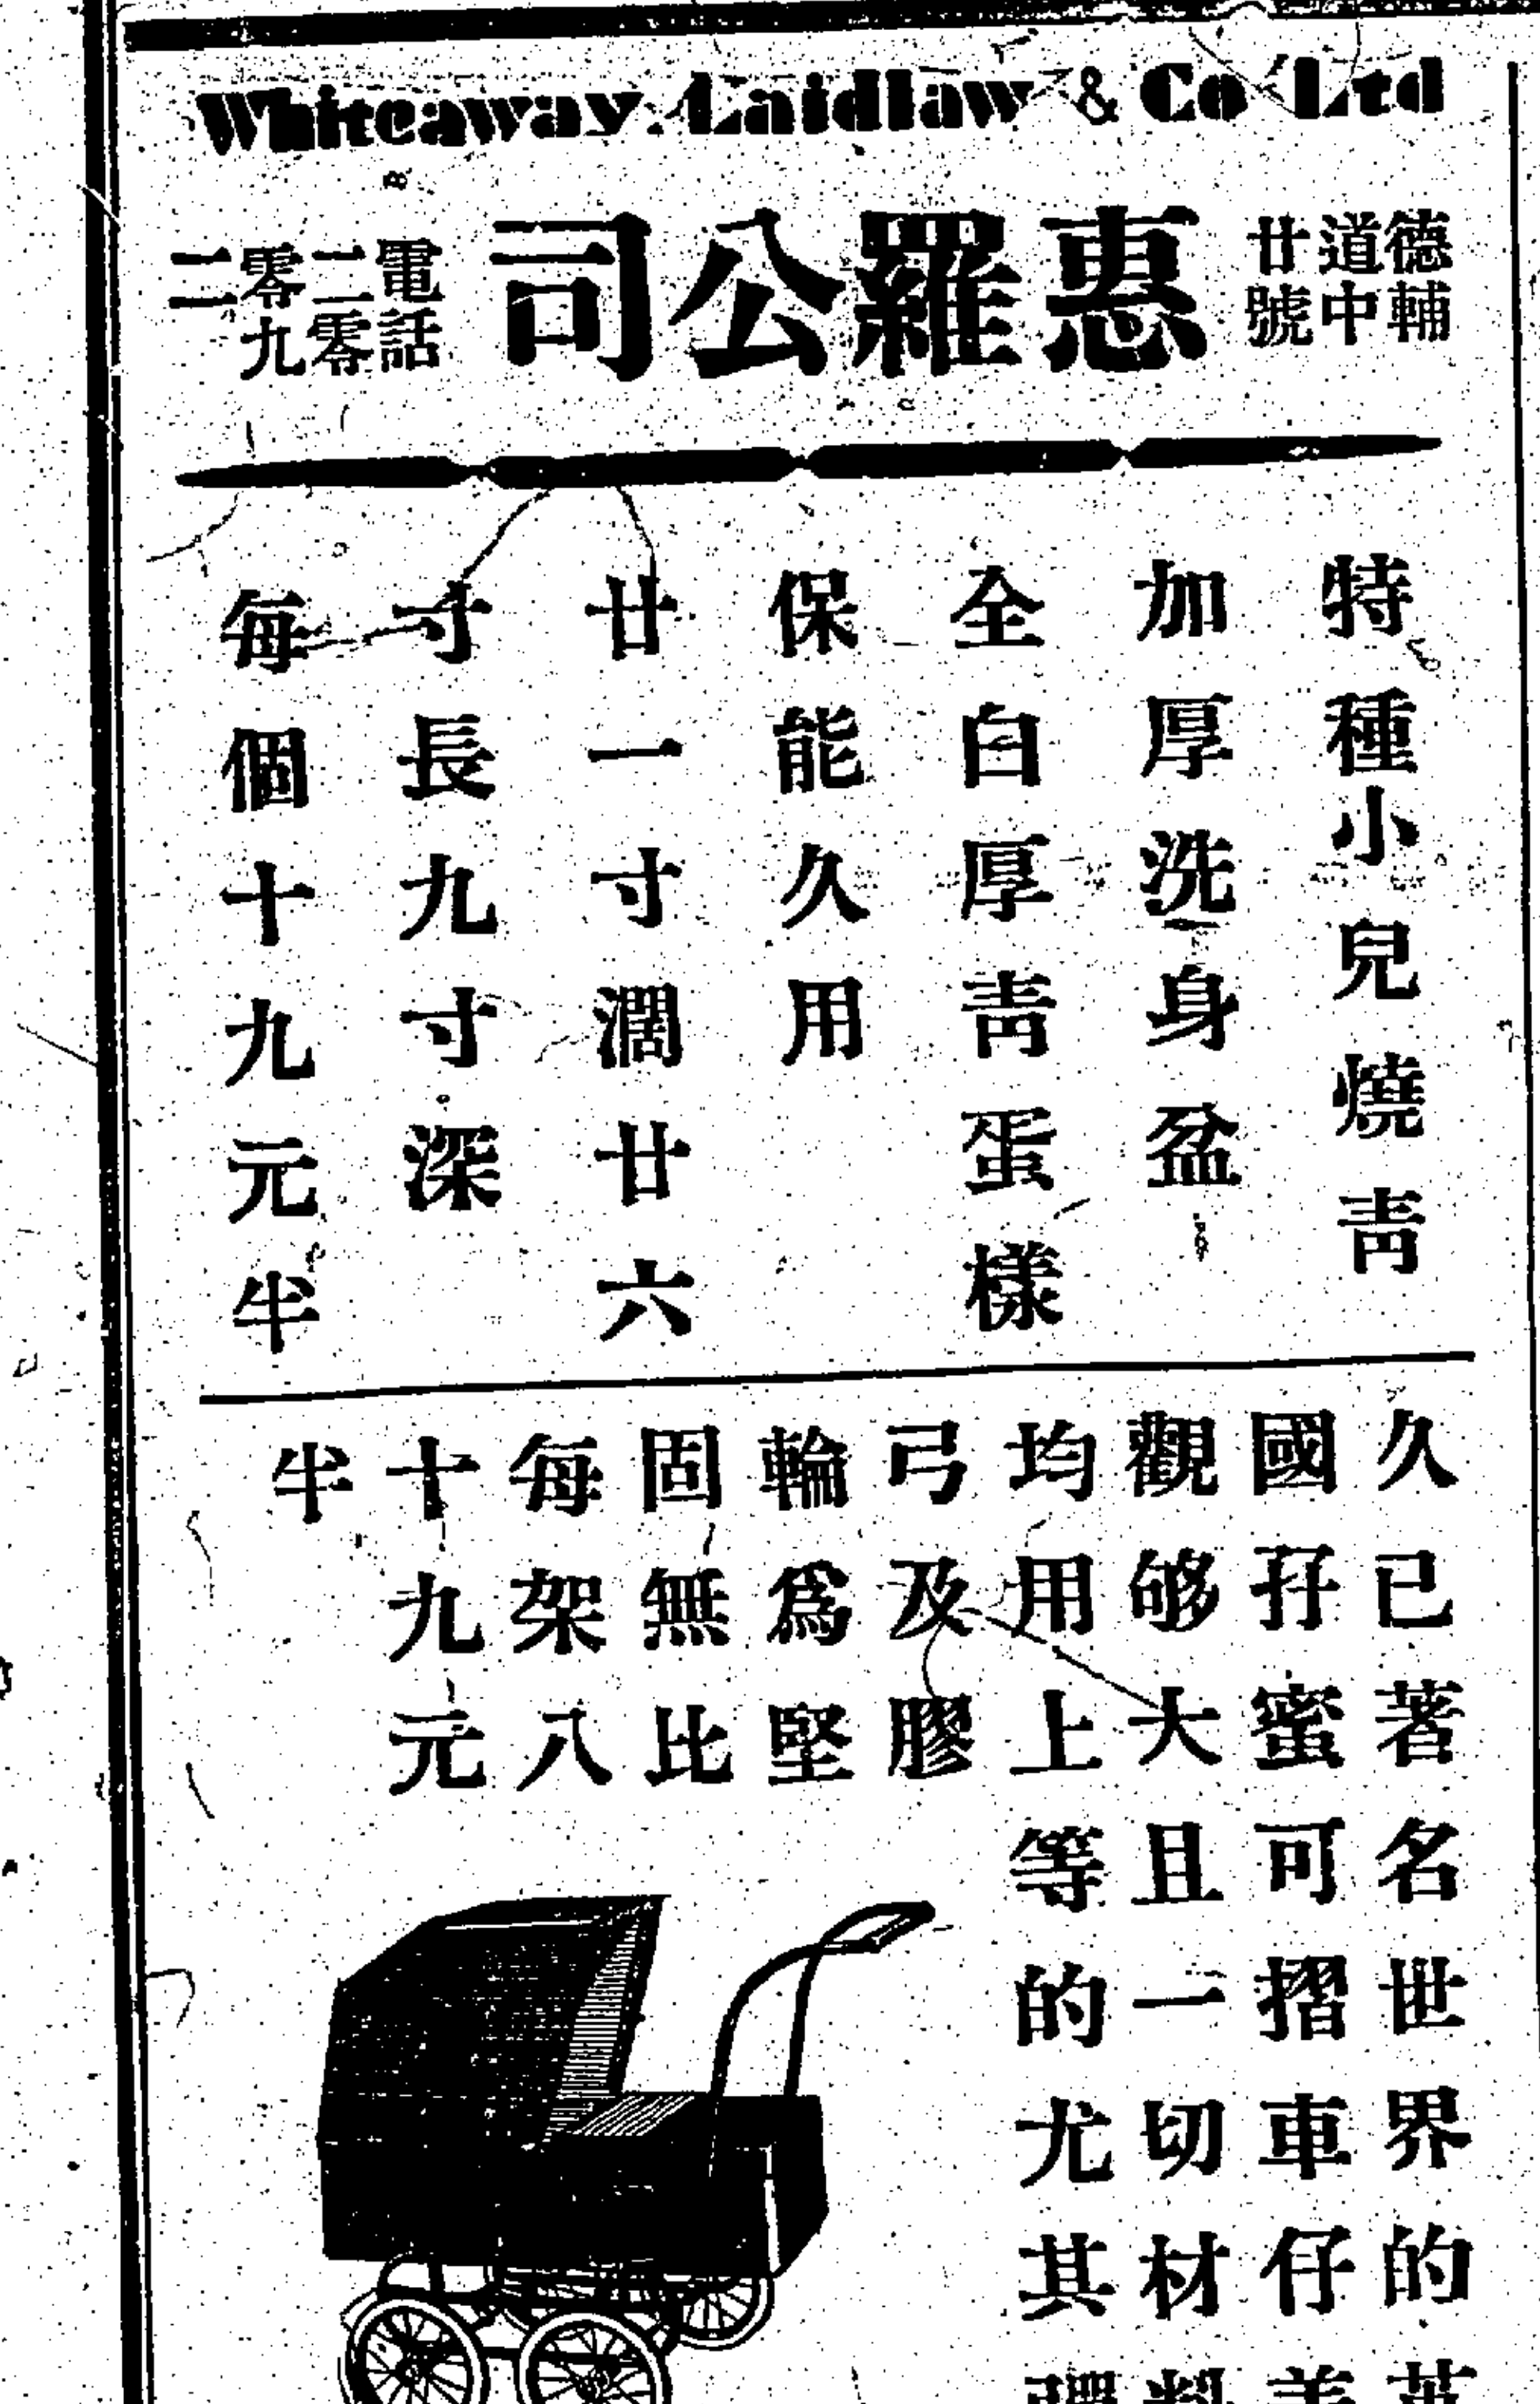 Whiteaway Laidlaw & Co Ltd
德輔
道中
廿號
惠羅公司
電話
二零
零九
二二
特種小兒燒靑
加厚洗身盆
全白厚靑蛋樣
保能久用
廿一寸濶廿六
寸長九寸深
每個十九元半
久已著名世界的英
國孖蜜可摺車仔美
觀够大且一切材料
均用上等的尤其彈
弓及膠
輪爲堅
固無比
每架八
十九元
半